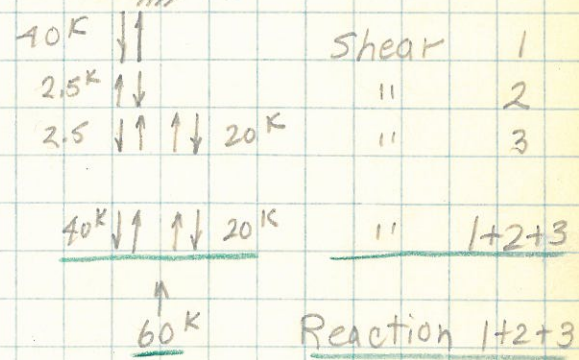 40K ↓↑ Shear 1
2.5K ↑↓ " 2
2.5 ↓↑ ↑↓ 20K " 3
40K ↓↑ ↑↓ 20K " 1+2+3
↑
60K Reaction 1+2+3